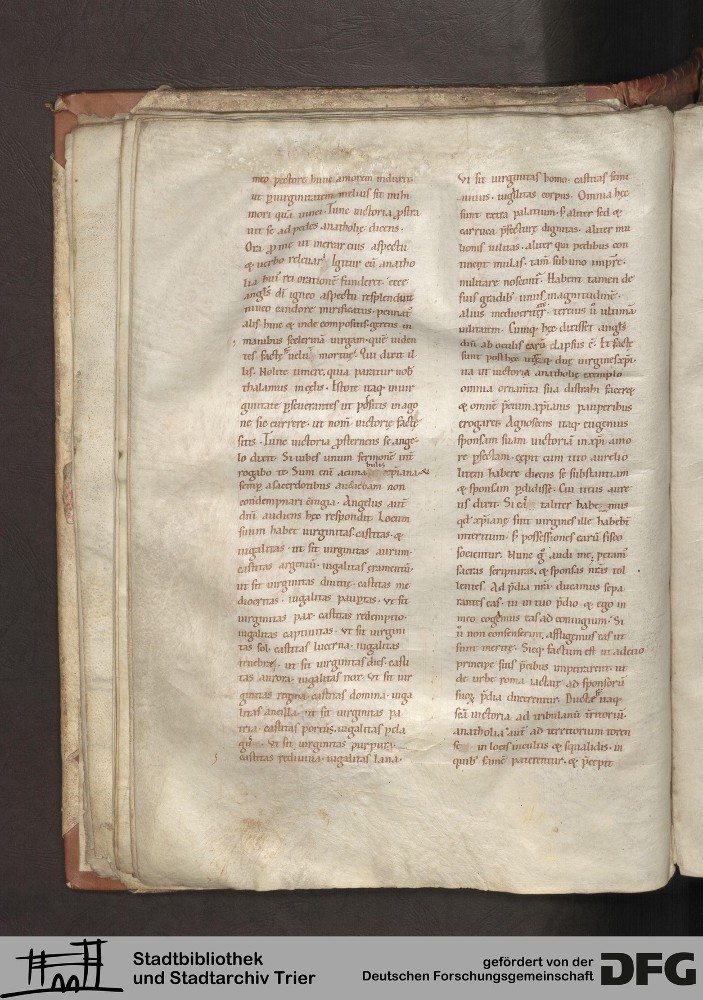 meo pectore hunc amorem induxit.
ut p uirginitatem melius sit mihi
mori quā uinci. Tunc uictoria pstra
uit se ad pedes anatholię dicens.
Ora p me ut merear eius aspectu
& uerbo releuari. Igitur cū anatho
lia hui rei orationē funderet. ecce
angls dī igneo aspectu resplenduit
niueo candore purificatus. pennat
alis hinc & inde compositis. gerens in
manibus sceleriñā uirgam. quē uiden
tes factę uelut mortuę. Qui dixit il
lis. Nolite timere. quia paratur uob
thalamus in cęlis. Estote itaq; in uir
ginitate pseuerantes ut possitis in ago
ne sic currere. ut nom uictorię factę
sitis. Tunc uictoria psternens se ange
lo dixit. Si iubes unum sermonē int
rogabo te. Sum enī acuna bulis xpiana &
semp a sacerdotibus audiebam non
condempnari cōiugia. Angelus aut
dnī audiens hęc respondit. Locum
suum habet uirginitas castitas. &
iugalitas. ut sit uirginitas aurum.
castitas argentū. iugalitas eramentū.
ut sit uirginitas diuitię. castitas me
diocritas. iugalitas paupertas. ut sit
uirginitas pax. castitas redemptio.
iugalitas captiuitas. ut sit uirgini
tas sol. castitas lucerna. iugalitas
tenebrę. ut sit uirginitas dies. casti
tas aurora. iugalitas nox. ut sit uir
ginitas regina. castitas domina. iuga
litas ancilla. ut sit uirginitas pa
tria. castitas portus. iugalitas pela
gus. ut sit uirginitas purpura.
castitas rediuiua. iugalitas lana.
ut sit uirginitas homo. castitas semi
uiuus. iugalitas corpus. Omnia hęc
sunt extra palatium. s; aliter sed &
carruca pfecturę dignitas. aliter mu
lionis uilitas. aliter qui pedibus con
tinent mulas. tam sub uno impre.
militare noscunt. Habent tamen de
suis gradib; unus magnitudinē.
alius mediocritatē. tercius ū ultimā
uilitatem. Cumq; hęc dixisset angls
dnī ab oculis earū elapsus ē. Et factę
sunt post hęc due uirgines xpi.
na ut uictoria anatholię exemplo
omnia ornamta sua distrahi faceret
& omnē pcium xpianis pauperibus
erogaret. Agnoscens itaq; eugenius
sponsam suam uictoriā in xpi amo
re pfectam. cepit cum tito aurelio
litem habere dicens se substantiam
& sponsam pdidisse. Cui titus aure
us dixit. Si eas taliter habemus
qd xpianę sint uirgines ille habebt
interitum. s; possessiones earū fisco
socientur. Nunc g audi me. petam
sacras scripturas. & sponsas nras tol
lentes. Ad pdia nra ducamus sepa
rantes eas. tu in tuo pdio & ego in
meo cogemus eas ad coniugium. Si
ū non consenserint. affligemus eas ut
sunt meritę. Sicq; factum est ut adeuntes
principē suis pcibus impetrarent ut
de urbe roma iactatę ad sponsorū
suorū pdia ducerentur. Ductę itaq;
scā uictoria ad tribulanū territoriū.
anatholia aut ad territorium toren
se. in locis incultis & squalidis. in
quib; famē paterentur. & pcepit
Stadtbibliothek
und Stadtarchiv Trier
gefördert von der
Deutschen Forschungsgemeinschaft
DFG